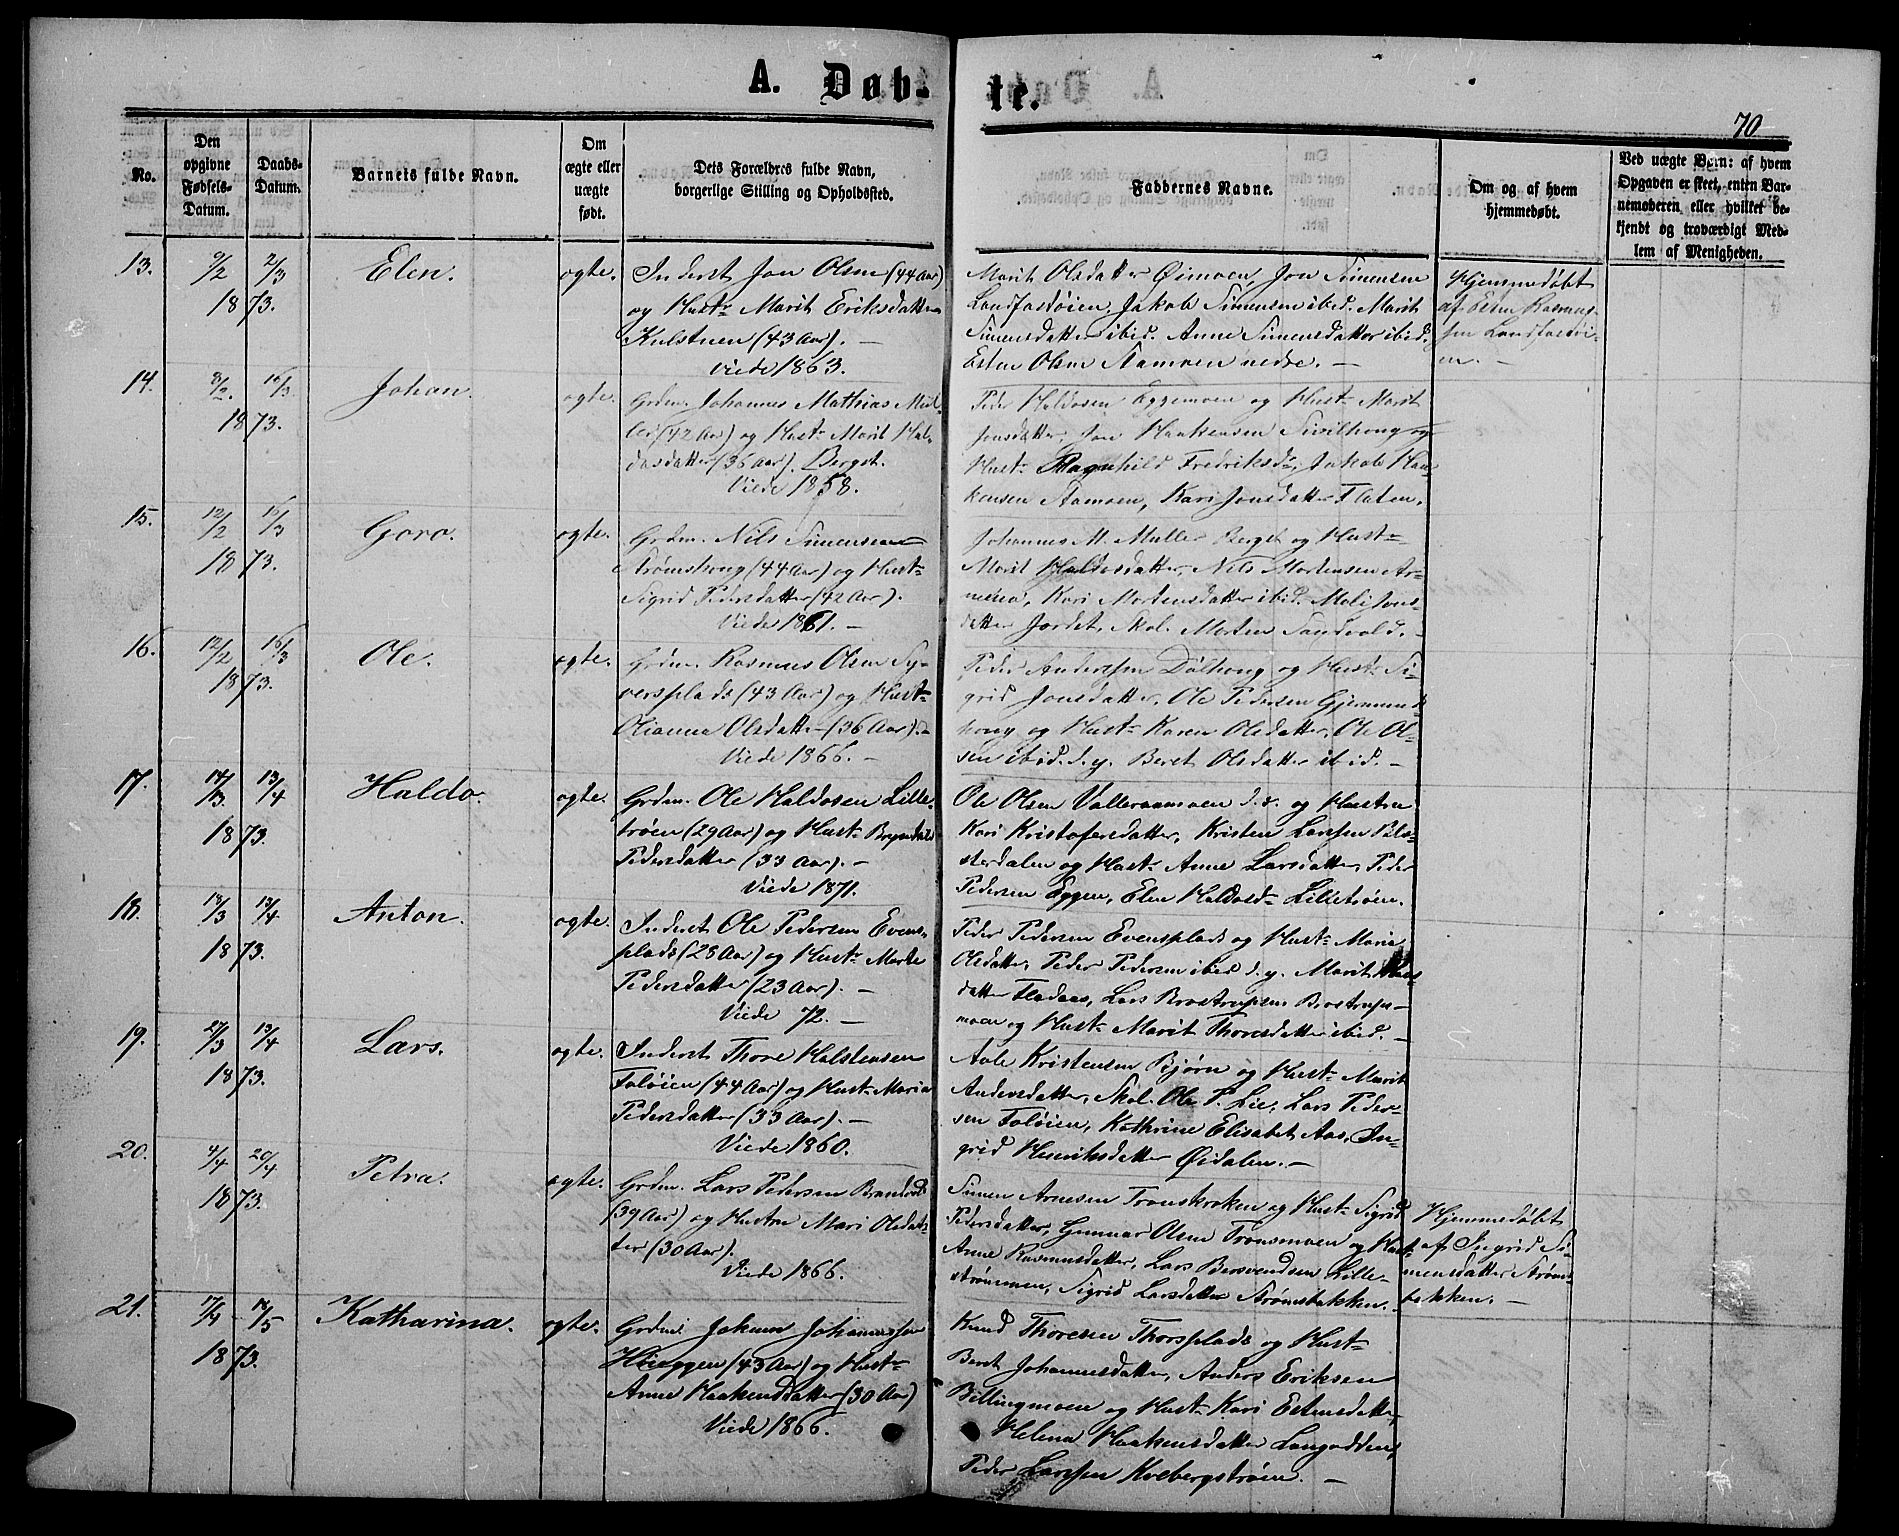 A. Døb-
te.
70
No.
Den opgivne Fødsels-Datum.
Daabs-Datum.
Barnets fulde Navn.
Om ægte eller uægte født.
Dets Forældres fulde Navn, borgerlige Stilling og Opholdssted.
Faddernes Navne.
Om og af hvem hjemmedøbt.
Ved uægte Børn: af hvem Opgaven er skeet, enten Barnemoderen eller hvilket bekjendt og troværdigt Medlem af Menigheden.
13. 9/2 2/3 1873. Elen. ogte.
Inderst Jon Olsen (44 Aar)
og Hustr Marit Eriksdatter
Kulstuen (43 Aar). —
Viede 1863.
Marit Olsdatter Øimoen, Jon Simensen
Landfastøien, Jakob Simensen ibid. Marit
Simensdatter ibid. Anne Simensdatter ibid.
Esten Olsen Aamoen nedre. —
Hjemmedøbt
af Esten Rasmus-
sen Landfastøi-
en. —
14. 8/2 16/3 1873. Johan. ogte.
Grdm. Johannes Mathias Mül-
ler (42 Aar) og Hustr Marit Hal-
dosdatter (36 Aar). Berget.
Viede 1858.
Peder Haldosen Eggemoen og Hustr Marit
Jonsdatter, Jon Haakensen Sivilhong og
Hustr Ragnhild Fredriksd., Jakob Haa-
kensen Aamoen, Kari Jonsdatter Flaten.
15. 12/2 16/3 1873. Goro. ogte.
Grdm. Nils Simensen
Strømshong (44 Aar) og Hustr
Sigrid Pedersdatter (42 Aar).
Viede 1861. —
Johannes M. Müller Berget og Hustr
Marit Haldosdatter, Nils Mortensen Ar-
nemo, Kari Mortensdatter ibid. Mali Jons-
datter Jordet, Skol. Morten Sandvold. —
16. 12/2 16/3 1873. Ole. ogte.
Grdm. Rasmus Olsen Sy-
versplads (43 Aar) og Hustr
Olianna Olsdatter (36 Aar). —
Viede 1866. —
Peder Anderssen Dølhong og Hustr Si-
grid Jonsdatter, Ole Pedersen Gjermunds-
hong og Hustr Karen Olsdatter, Ole Ol-
sen ibid. d. y. Beret Olsdatter ibid. —
17. 14/3 13/4 1873. Haldo. ogte.
Grdm. Ole Haldosen Lille-
trøen (29 Aar) og Hustr Bryndild
Pedersdatter (33 Aar). —
Viede 1871.
Ole Olsen Valleraamoen d. æ. og Hustru
Kari Kristofersdatter, Kristen Larssen Pils-
terdalen og Hustr Anne Larsdatter, Peder
Pedersen Eggen, Elen Haldosd. Lilletrøen.
18. 18/3 13/4 1873. Anton. ogte.
Inderst Ole Pedersen Evens-
plads (28 Aar) og Hustr Marte
Pedersdatter (23 Aar). —
Viede 72. —
Peder Pedersen Evensplads og Hustr Maria
Olsdatter, Peder Pedersen ibid d. y. Marit
datter Fladaas, Lars Brostrupsen Brostrups-
moen og Hustr Marit Thoresdatter ibid. —
19. 27/3 13/4 1873. Lars. ogte.
Inderst Thore Halstensen
Foløien (44 Aar) og Hustr Maria
Pedersdatter (33 Aar). —
Viede 1860.
Aale Kristensen Bjørn og Hustr Marit
Andersdatter, Skol. Ole P. Lie, Lars Peder-
sen Foløien, Kathrine Elisabet Aas, In-
grid Henriksdatter Øidalen. —
20. 4/4 20/4 1873. Petra. ogte.
Grdm. Lars Pedersen Brandvold
(39 Aar) og Hustru Mari Olsdat-
ter (30 Aar).
Viede 1866.
Simen Arnesen Tronskroken og Hustr Sigrid
Pedersdatter, Gunnar Olsen Tronsmoen og Hustr
Anne Rasmusdatter, Lars Bersvendsen Lille-
strømmen, Sigrid Larsdatter Strømsbakken.
Hjemmedøbt
af Ingrid Si-
mensdatter Strøms-
bakken. —
21. 17/4 18/5 1873. Katharina. ogte.
Grdm. Jakum Johannessen
Høieggen (43 Aar) og Hustr
Anne Haakensdatter (30 Aar)
Viede 1866.
Knud Thoresen Thorsplads og Hustr
Beret Johannesdatter, Anders Eriksen
Billingmoen og Hustr Kari Estensdatter,
Helena Haakensdatter Langodden,
Peder Larssen Kvebergstrøen. —